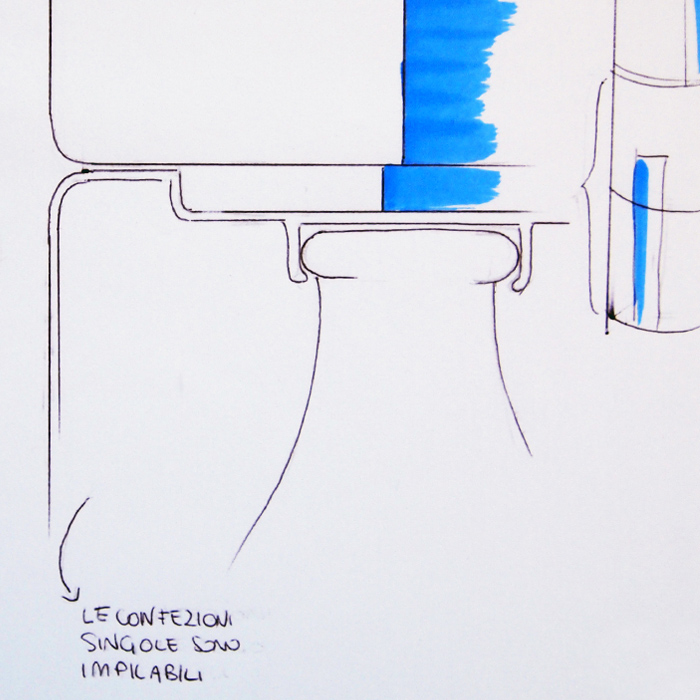 LE CONFEZIONI
SINGOLE SONO
IMPILABILI